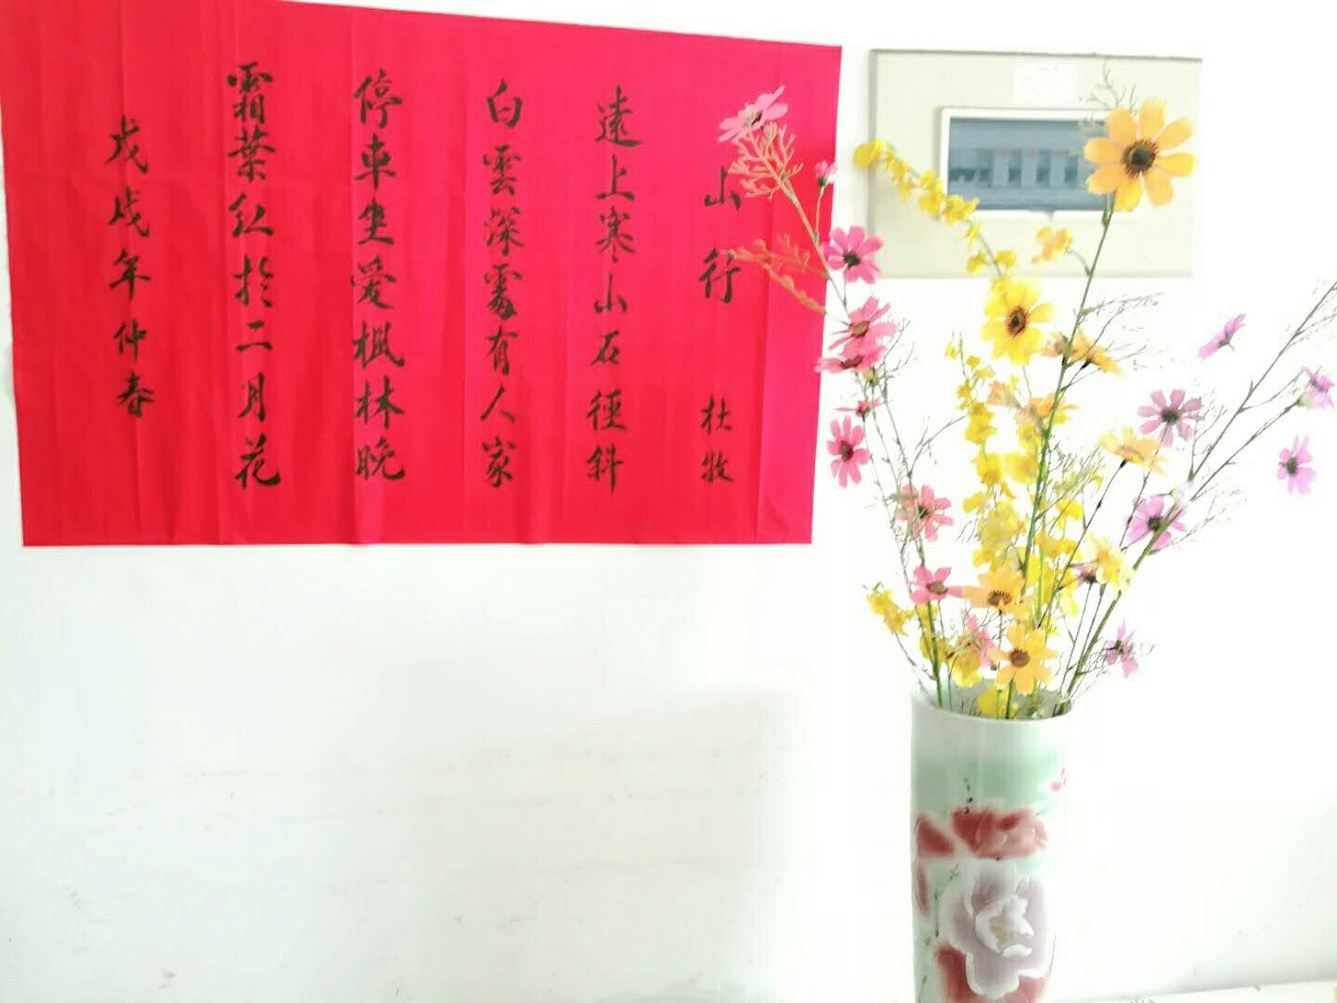 山行 杜牧
遠上寒山石徑斜
白雲深處有人家
停車坐愛楓林晚
霜葉紅於二月花
戊戌年仲春